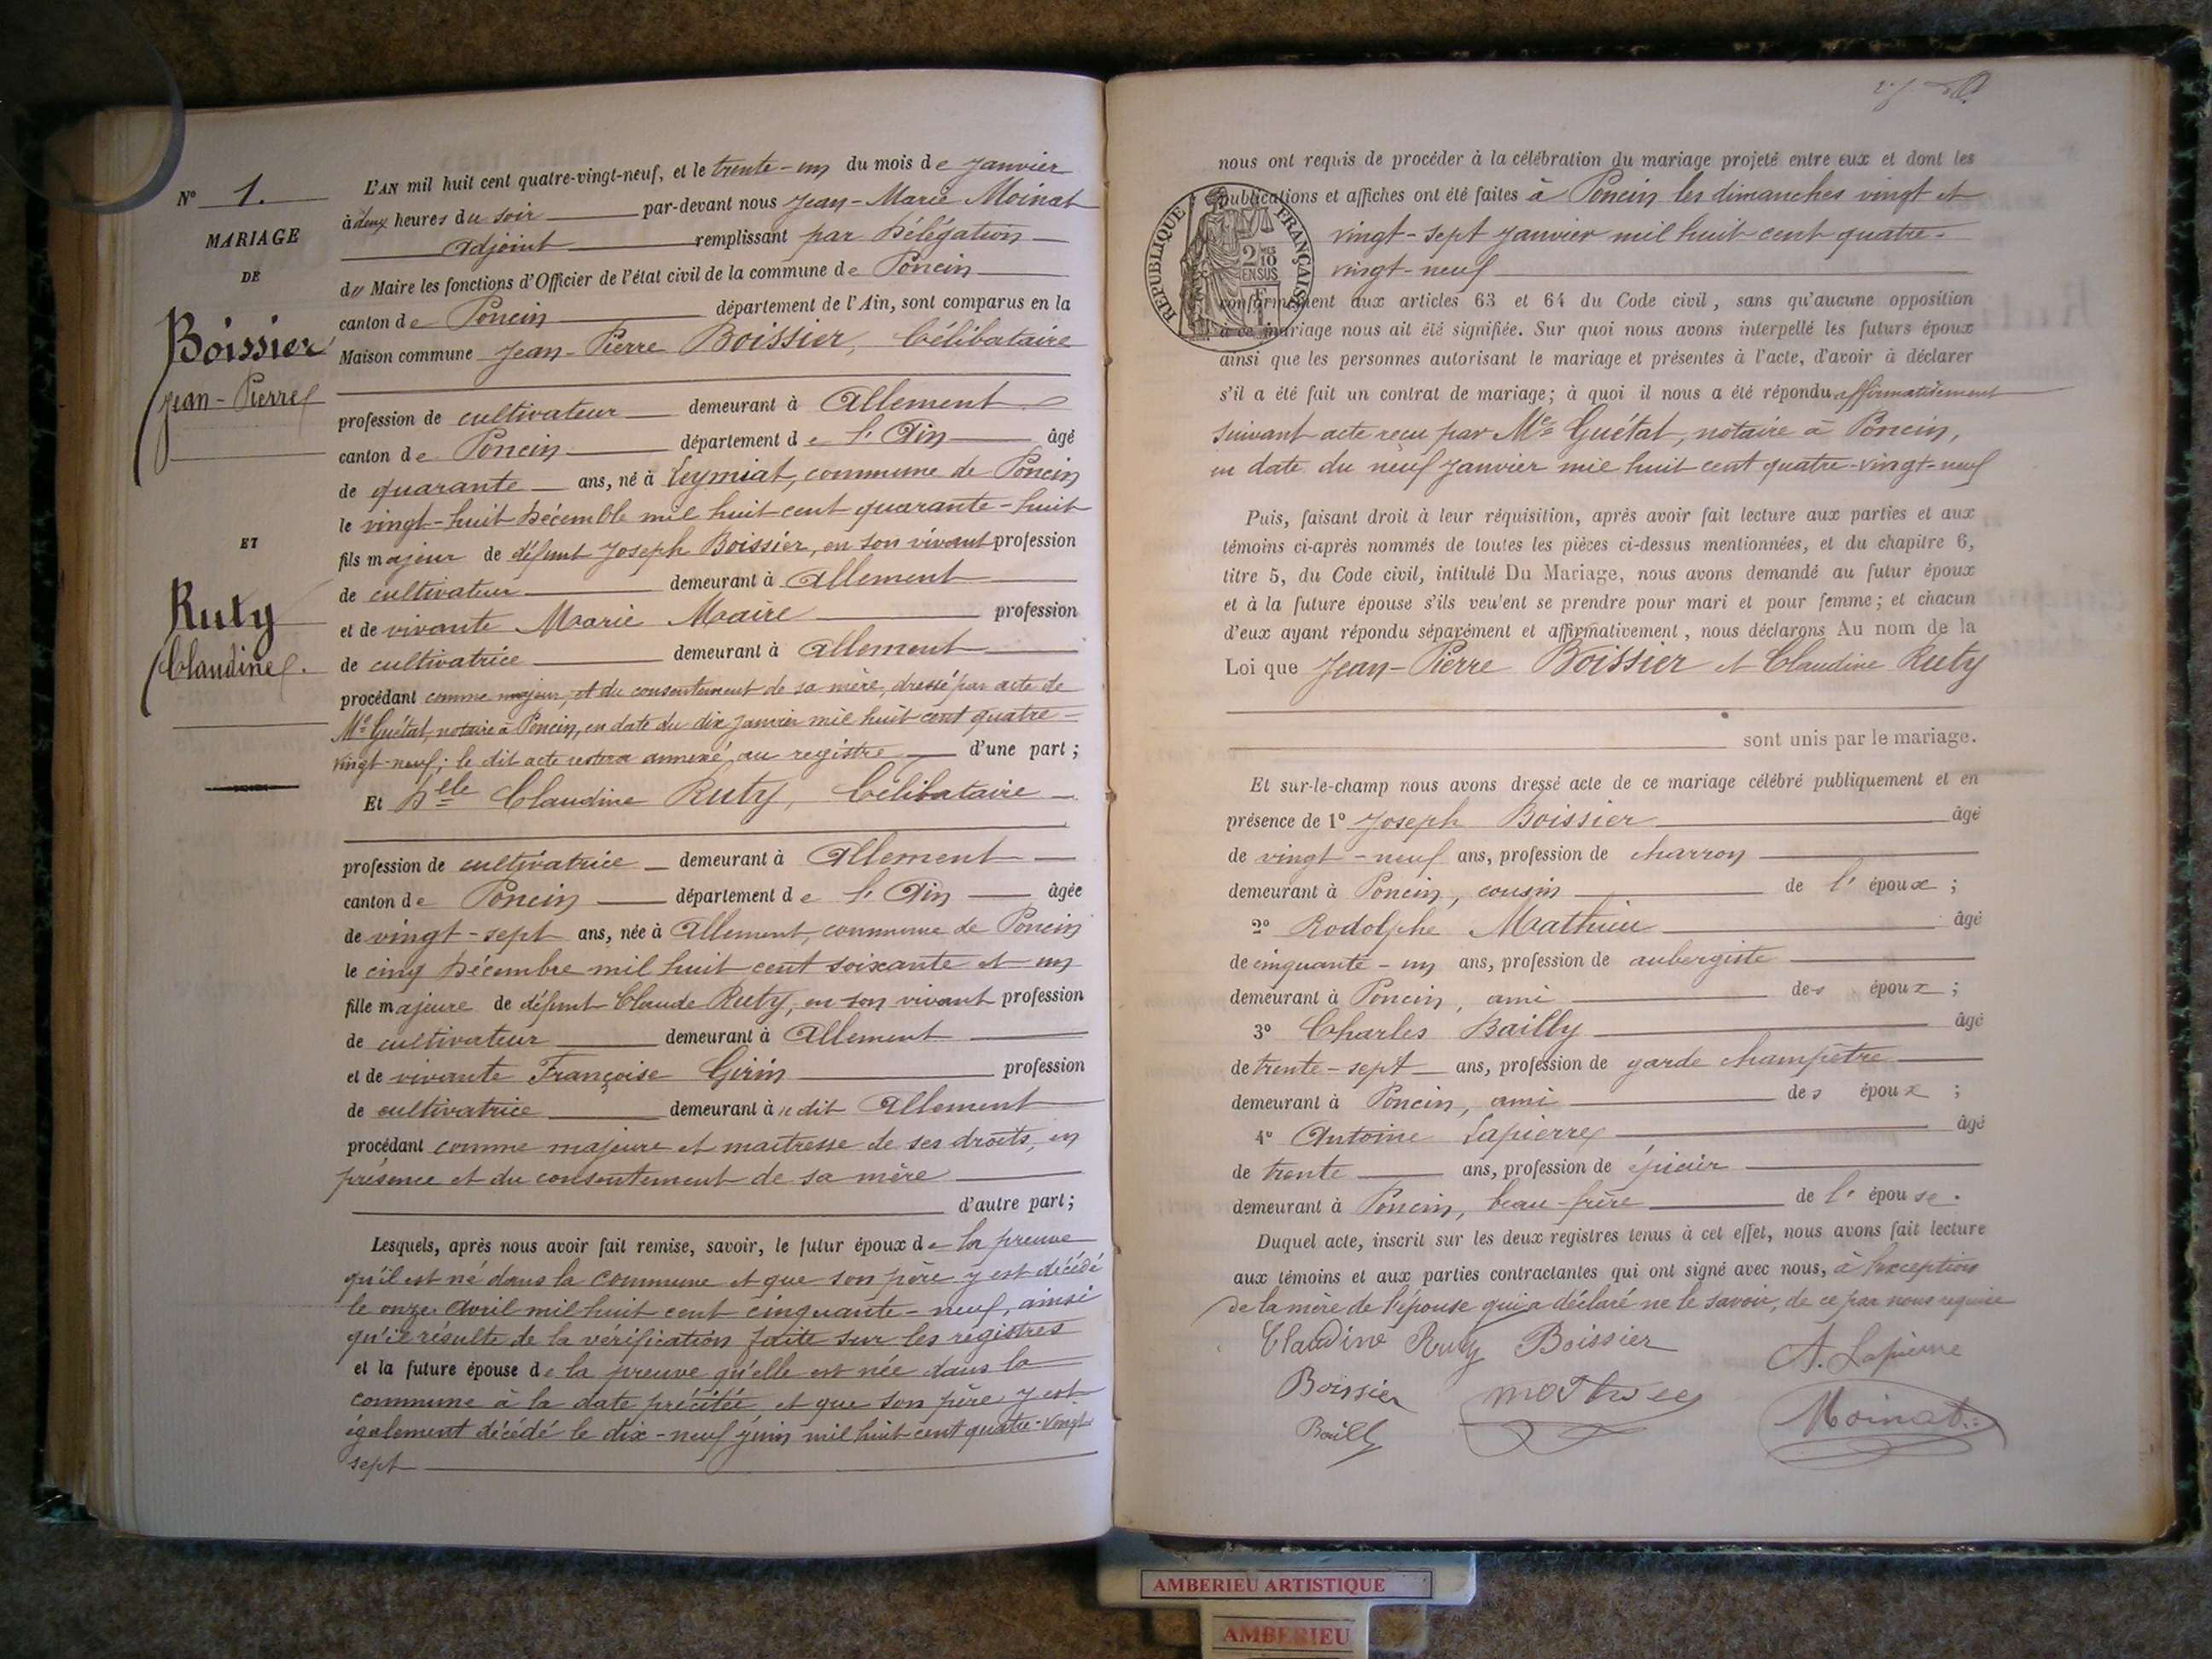 N° 1.
MARIAGE
DE
Boissier
Jean-Pierre
ET
Ruty
Claudine.
L'AN mil huit cent quatre-vingt-neuf, et le trente-un du mois de Janvier
à deux heures du soir par-devant nous Jean-Marie Moinat
adjoint remplissant par Délégation
du Maire les fonctions d'Officier de l'état civil de la commune de Poncin
canton de Poncin département de l'Ain, sont comparus en la
Maison commune Jean-Pierre Boissier, Célibataire
profession de cultivateur demeurant à Allement
canton de Poncin département de l'Ain âgé
de quarante ans, né à Leymiat, commune de Poncin
le vingt-huit Décembre mil huit cent quarante-huit
fils majeur de défunt Joseph Boissier, en son vivant profession
de cultivateur demeurant à Allement
et de vivante Marie Maire profession
de cultivatrice demeurant à Allement
procédant comme majeur, et du consentement de sa mère, dressé par acte de
Me Guétat, notaire à Poncin, en date du dix Janvier mil huit cent quatre-
vingt-neuf; le dit acte restera annexé au registre d'une part;
Et Delle Claudine Ruty, Célibataire
profession de cultivatrice demeurant à Allement
canton de Poncin département de l'Ain âgée
de vingt-sept ans, née à Allement, commune de Poncin
le cinq Décembre mil huit cent soixante et un
fille majeure de défunt Claude Ruty, en son vivant profession
de cultivateur demeurant à Allement
et de vivante Françoise Girin profession
de cultivatrice demeurant à dit Allement
procédant comme majeure et maitresse de ses droits, en
présence et du consentement de sa mère
d'autre part;
Lesquels, après nous avoir fait remise, savoir, le futur époux de la preuve
qu'il est né dans la commune et que son père y est décédé
le onze Avril mil huit cent cinquante-neuf, ainsi
qu'il résulte de la vérification faite sur les registres
et la future épouse de la preuve qu'elle est née dans la
commune à la date précitée et que son père y est
également décédé le dix-neuf juin mil huit cent quatre-vingt
sept
nous ont requis de procéder à la célébration du mariage projeté entre eux et dont les
publications et affiches ont été faites à Poncin les dimanches vingt et
vingt-sept Janvier mil huit cent quatre-
vingt-neuf
RÉPUBLIQUE FRANÇAISE
2/10 EN SUS
conformément aux articles 63 et 64 du Code civil, sans qu'aucune opposition
à ce mariage nous ait été signifiée. Sur quoi nous avons interpellé les futurs époux
ainsi que les personnes autorisant le mariage et présentes à l'acte, d'avoir à déclarer
s'il a été fait un contrat de mariage; à quoi il nous a été répondu affirmativement
suivant acte reçu par Me Guétat, notaire à Poncin,
en date du neuf Janvier mil huit cent quatre-vingt-neuf
Puis, faisant droit à leur réquisition, après avoir fait lecture aux parties et aux
témoins ci-après nommés de toutes les pièces ci-dessus mentionnées, et du chapitre 6,
titre 5, du Code civil, intitulé Du Mariage, nous avons demandé au futur époux
et à la future épouse s'ils veulent se prendre pour mari et pour femme; et chacun
d'eux ayant répondu séparément et affirmativement, nous déclarons Au nom de la
Loi que Jean-Pierre Boissier et Claudine Ruty
sont unis par le mariage.
Et sur-le-champ nous avons dressé acte de ce mariage célébré publiquement et en
présence de 1° Joseph Boissier âgé
de vingt-neuf ans, profession de charron
demeurant à Poncin, cousin de l'époux;
2° Rodolphe Mathieu âgé
de cinquante-un ans, profession de aubergiste
demeurant à Poncin, ami des époux;
3° Charles Bailly âgé
de trente-sept ans, profession de garde champêtre
demeurant à Poncin, ami des époux;
4° Antoine Lapierre âgé
de trente ans, profession de épicier
demeurant à Poncin, beau-frère de l'épouse.
Duquel acte, inscrit sur les deux registres tenus à cet effet, nous avons fait lecture
aux témoins et aux parties contractantes qui ont signé avec nous, à l'exception
de la mère de l'épouse qui a déclaré ne le savoir, de ce par nous requise
Claudine Ruty Boissier A. Lapierre
Boissier Mathieu Moinat
Bailly
AMBERIEU ARTISTIQUE
AMBERIEU